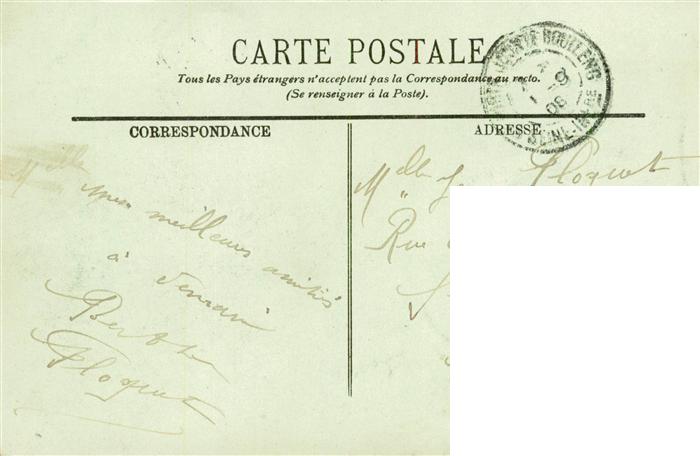 CARTE POSTALE
Tous les Pays étrangers n'acceptent pas la Correspondance au recto.
(Se renseigner à la Poste).
CORRESPONDANCE
Mes meilleures amitiés
à
Berthe
Floquet
ADRESSE
Melle Floquet
Rue